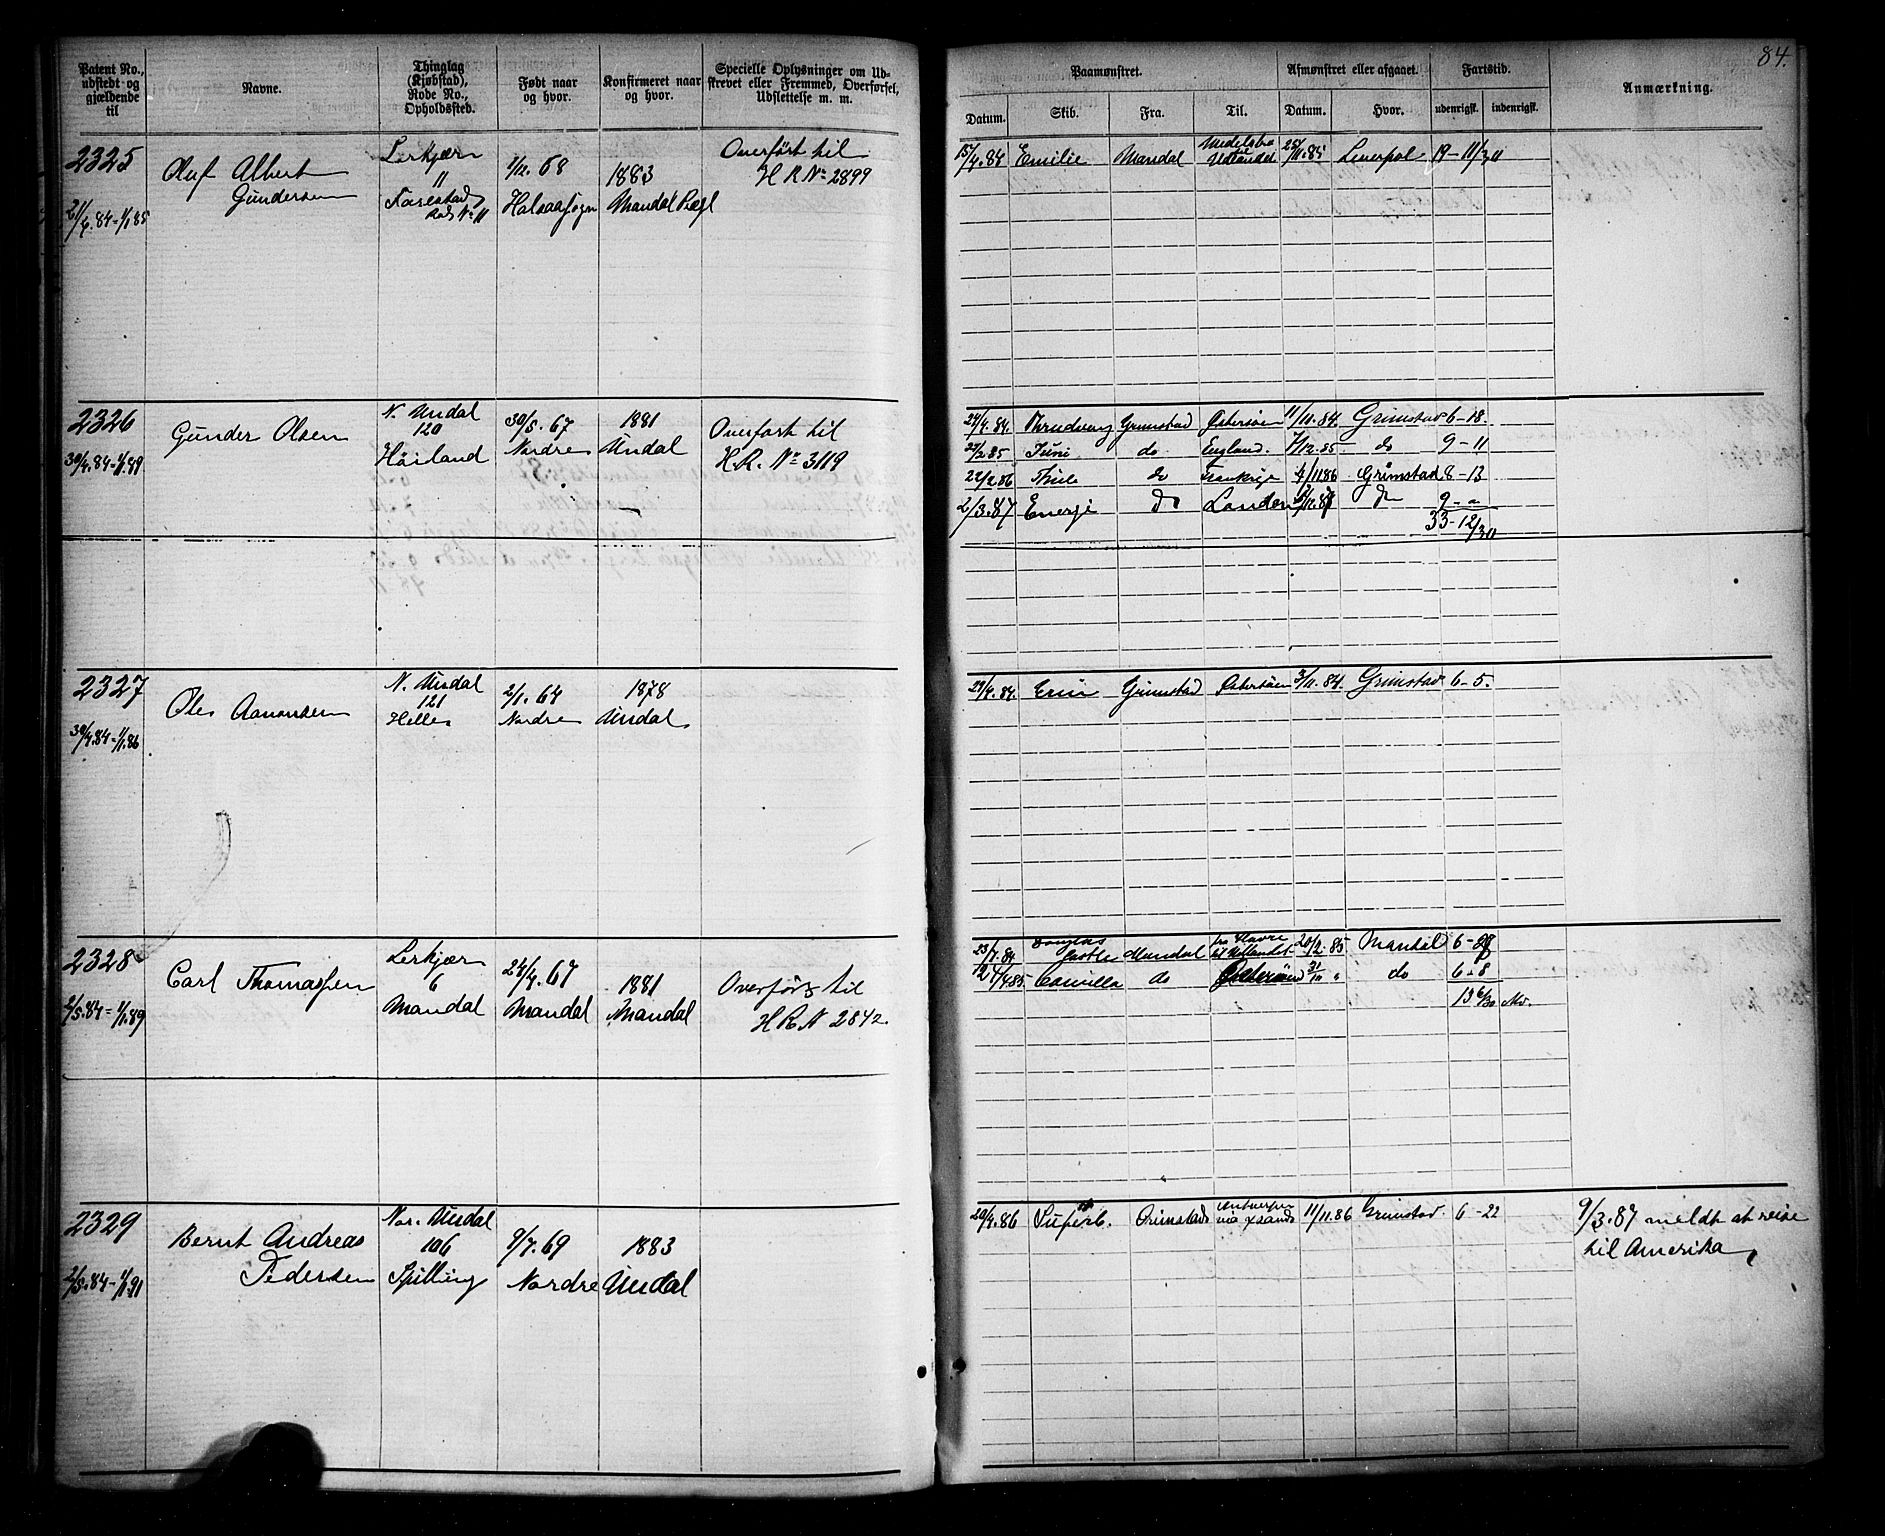 84.
Patent No., udstedt og gjældende til
Navne.
Thinglag (Kjøbstad), Rode No., Opholdssted.
Født naar og hvor.
Konfirmeret naar og hvor.
Specielle Oplysninger om Udskrevet eller Fremmed, Overførsel, Udslettelse m. m.
Paamønstret.
Afmønstret eller afgaaet.
Fartstid.
Anmærkning.
Datum.
Skib.
Fra.
Til.
Datum.
Hvor.
udenrigsk.
indenrigsk.
2325
21/4.84-1/1.85
Oluf Albert
Gundersen
Lerkjær
11
1/12. 68
Halsaa sogn
1883
Mandal
Overført til
H R No 2899
15/4.84 Emilie Mandal
Liverpol 19-11/30
2326
30/4.84-1/1.89
Gunder Olsen
N. Undal
120
Høiland
30/5. 67
Nordre
1881
Undal
Overført til
H.R. No 3119
24/4.84. Thrudvang Grimstad Østersøen 11/11.84. Grimstad 6-18.
27/2.85 Juni do England. 7/12.85. do 9-11
22/2.86 Thule do Frankrige 4/11 86 Grimstad 8-13
2/3.87 Energi do London do 9-"
33-12/30
2327
30/4.84-1/1.86
Ole Aanonsen
N. Undal
121
Helle
2/1. 64
Nordre
1878
Undal
29/4.84. Erin Grimstad Østersøen 3/11.84. Grimstad 6-5.
2328
2/5.84-1/1.89
Carl Thomassen
Lerkjær
6
Mandal
24/4.67
Mandal
1881
Mandal
Overført til
H R N 2842.
23/7.84 Douglas Castle Mandal fra Havre 20/2.85 Mandal
Camilla do Østersøen 31/10 " do 6-8
13 6/30 Mr.
2329
2/5.84-1/1.91
Bernt Andreas
Pedersen
Nor. Undal
106
Spilling
9/7.69
Nordre
1883
Undal
20/4.86 Superb. Grimstad Antwerpen via Xsand 11/11.86 Grimstad. 6-22
9/3.87 meldt at reise
til Amerika